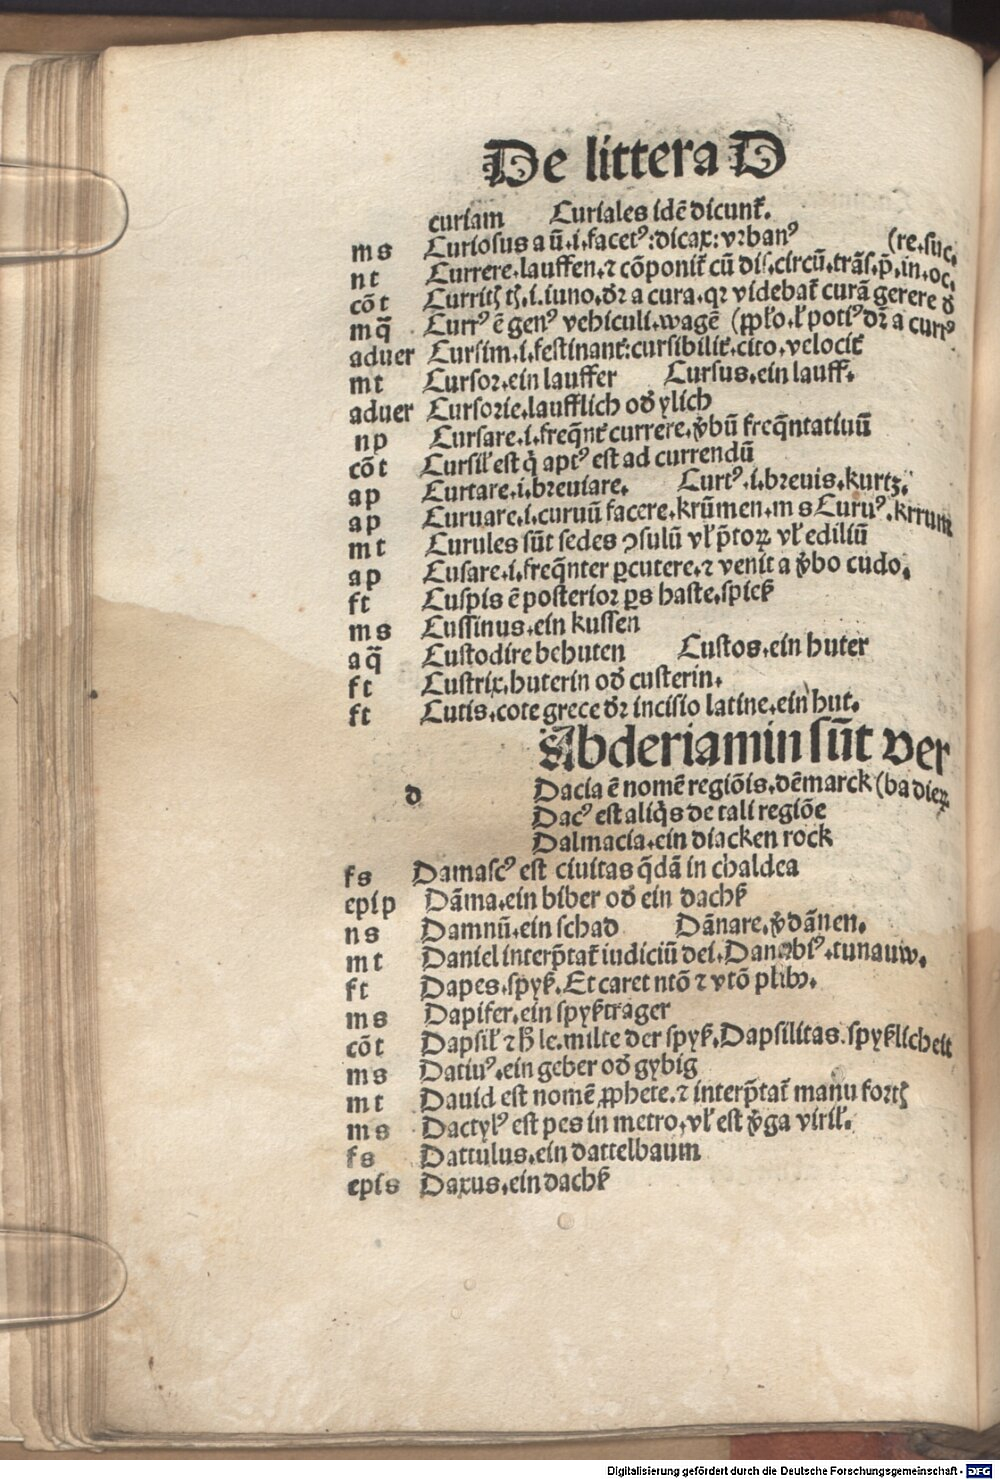 De littera D
curiam Curiales idē dicunt᷑.
ms Curiosus a ū.i.facetꝰ:dicax:vrbanꝰ (re.suc.
nt Currere.lauffen.⁊ cōponit᷑ cū dis.circū.trās.p̄.in.oc.
cōt Curritꝭ tꝭ.i.iuno.dr̄ a cura.qꝛ videbat᷑ curā gerere đ
mq̄ Currꝰ ē genꝰ vehiculi.wagē (ꝓpło.ł potiꝰ dr̄ a currꝰ
aduer Cursim.i.festinant᷑:cursibilit᷑.cito.velocit᷑
mt Cursor.ein lauffer Cursus.ein lauff.
aduer Cursorie.laufflich ođ ylich
np Cursare.i.freq̄nt᷑ currere.ꝟbū freq̄ntatiuū
cōt Cursił est q̇ aptꝰ est ad currendū
ap Curtare.i.breuiare. Curtꝰ.i.breuis.kurtz.
ap Curuare.i.curuū facere.krūmen.m s Curuꝰ.krrum
mt Curules sūt sedes ꝯsulū vł p̄toꝝ vł ediliū
ap Cusare.i.freq̄nter ꝑcutere.⁊ venit a ꝟbo cudo.
ft Cuspis ē posterior ꝑs haste.spicꝭ
ms Cussinus.ein kussen
aq̄ Custodire behuten Custos.ein huter
ft Custrix.huterin ođ custerin.
ft Cutis.cote grece dr̄ incisio latine.ein hut.
Abderiamin sūt ver
d Dacia ē nomē regiōis.dēmarck (ba dieꝝ
Dacꝰ est aliq̇s de tali regiōe
Dalmacia.ein diacken rock
fs Damascꝰ est ciuitas q̄dā in chaldea
epip Dāma.ein biber ođ ein dachß
ns Damnū.ein schad Dānare.ꝟdānen.
mt Daniel interp̄tat᷑ iudiciū dei.Danubiꝰ.tunauw.
ft Dapes.spyß.Et caret ntō ⁊ vtō plibꝰ.
ms Dapifer.ein spyßtrager
cōt Dapsił ⁊ h̄ le.milte der spyß.Dapsilitas.spyßlicheit
ms Datiuꝰ.ein geber ođ gybig
mt Dauid est nomē ꝓphete.⁊ interp̄tat᷑ manu fortꝭ
ms Dactylꝰ est pes in metro.vł est ꝟga virił.
fs Dattulus.ein dattelbaum
epis Daxus.ein dachß
Digitalisierung gefördert durch die Deutsche Forschungsgemeinschaft - DFG